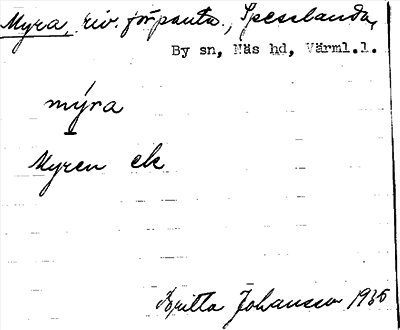 Myra, riv. förpants., Spesslanda,
By sn, Näs hd, Värml.l.
mýra
Myren ek
Britta Johansson 1935